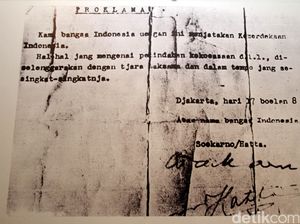 P R O K L A M A
Kami bangsa Indonesia dengan ini menjatakan Kemerdekaan
Indonesia.
Hal-hal jang mengenai pemindahan kekoeasaan d.l.l., di-
selenggarakan dengan tjara saksama dan dalam tempo jang se-
singkat-singkatnja.
Djakarta, hari 17 boelan 8
Atas nama bangsa Indonesia
Soekarno/Hatta.
Hatta
detikcom